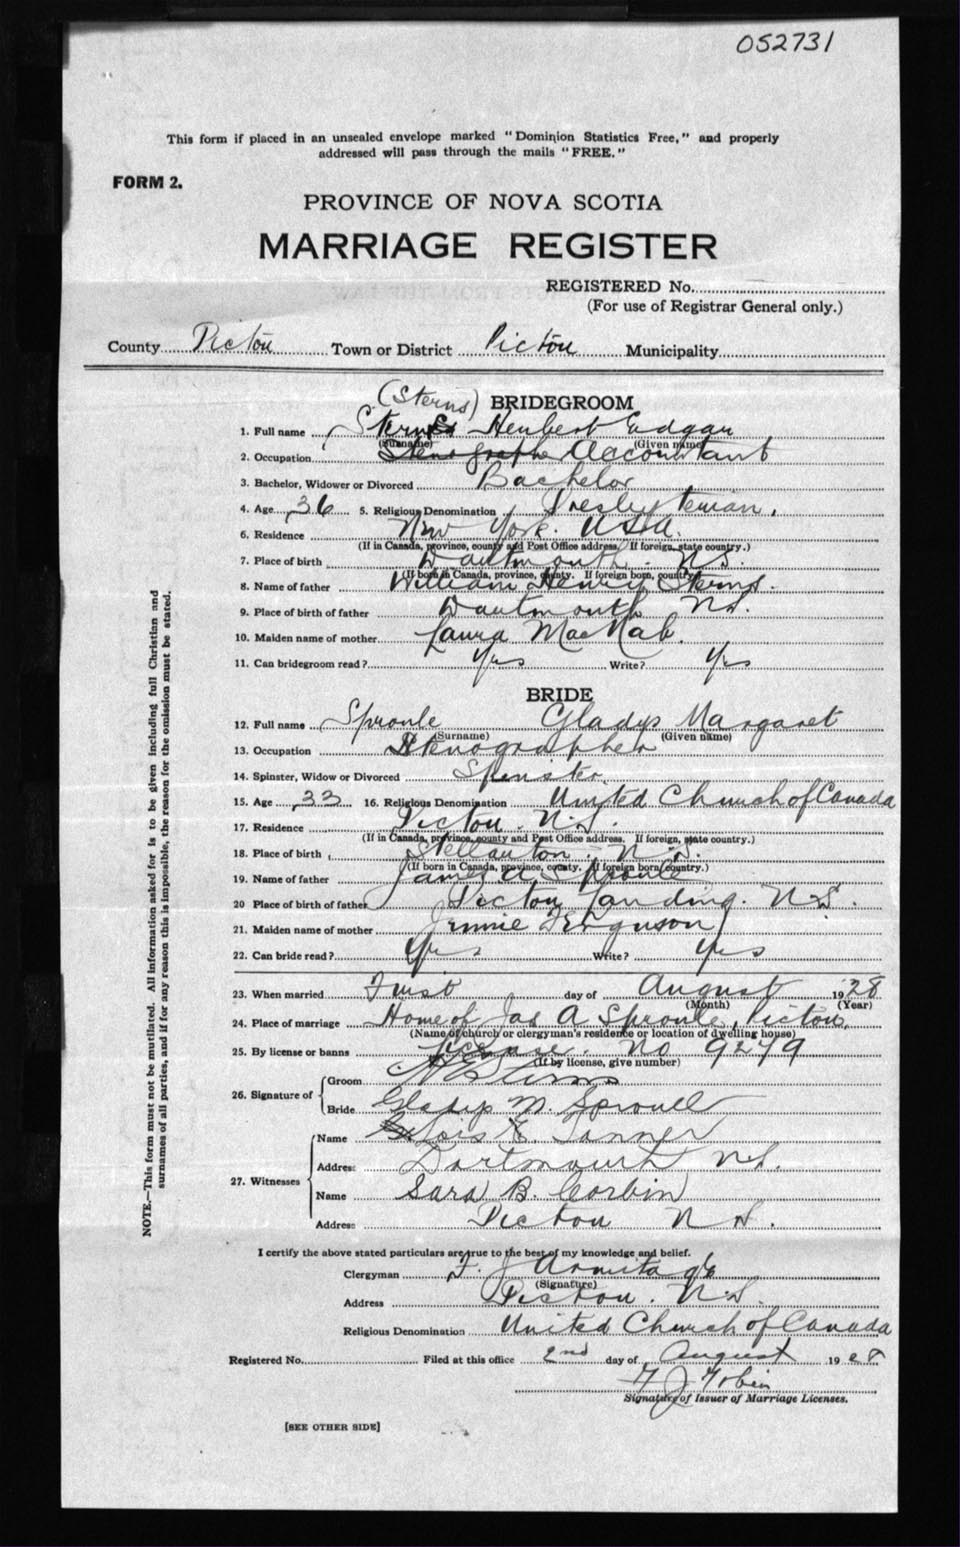 052731
This form if placed in an unsealed envelope marked "Dominion Statistics Free," and properly
addressed will pass through the mails "FREE."
FORM 2.
PROVINCE OF NOVA SCOTIA
MARRIAGE REGISTER
REGISTERED No.
(For use of Registrar General only.)
County Pictou Town or District Pictou Municipality
(Sterns) BRIDEGROOM
1. Full name Sterns Herbert Edgar
(Surname) (Given name)
2. Occupation Accountant
3. Bachelor, Widower or Divorced Bachelor
4. Age 36 5. Religious Denomination Presbyterian.
6. Residence New York. USA.
(If in Canada, province, county and Post Office address. If foreign, state country.)
7. Place of birth Dartmouth. N.S.
(If born in Canada, province, county. If foreign born, country.)
8. Name of father William Henry Sterns.
9. Place of birth of father Dartmouth N.S.
10. Maiden name of mother Laura MacNab.
11. Can bridegroom read? Yes Write? Yes
BRIDE
12. Full name Sproule Gladys Margaret
(Surname) (Given name)
13. Occupation Stenographer
14. Spinster, Widow or Divorced Spinster.
15. Age 33 16. Religious Denomination United Church of Canada
17. Residence Pictou. N.S.
(If in Canada, province, county and Post Office address. If foreign, state country.)
18. Place of birth Stellarton. N.S.
(If born in Canada, province, county. If foreign born, country.)
19. Name of father James A Sproule
20 Place of birth of father Pictou Landing. N.S.
21. Maiden name of mother Jennie Ferguson
22. Can bride read? Yes Write? Yes
23. When married First day of August 1928
(Month) (Year)
24. Place of marriage Home of Jas A Sproule, Pictou,
(Name of church or clergyman's residence or location of dwelling house)
25. By license or banns License. No 9279
(If by license, give number)
26. Signature of Groom H E Sterns
Bride Gladys M. Sproull
27. Witnesses Name Lois E. Tanner
Address Dartmouth N.S.
Name Sara B. Corbin
Address Pictou N.S.
I certify the above stated particulars are true to the best of my knowledge and belief.
Clergyman F. J Armitage
(Signature)
Address Pictou. N.S.
Religious Denomination United Church of Canada
Registered No. Filed at this office 2nd day of August 1928
Signature of Issuer of Marriage Licenses.
[SEE OTHER SIDE]
NOTE.—This form must not be mutilated. All information asked for is to be given including full Christian and
surnames of all parties, and if for any reason this is impossible, the reason for the omission must be stated.